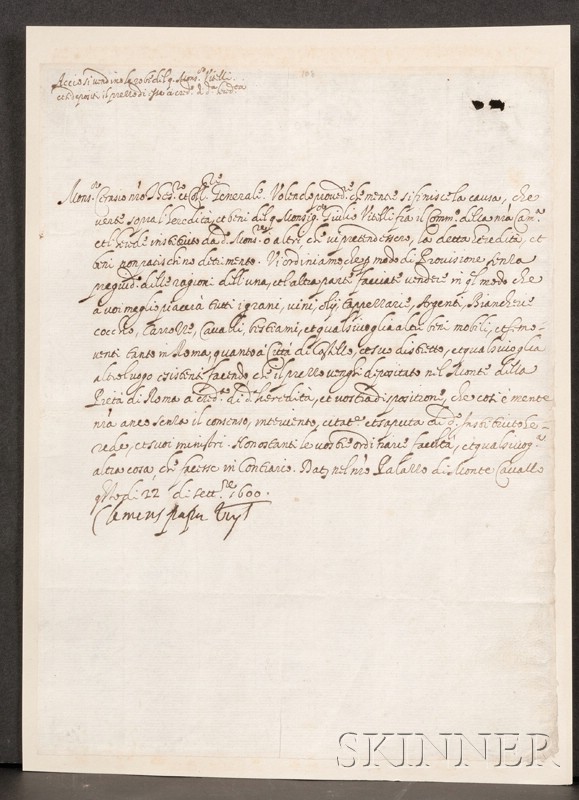 Acciò si vendino le robbe del q. Mons.re Vitelli
et si depositi il prezzo di esse a cred. d. da hered.tà
108
Mons.re Thes.re et Coll.re Generale. Volendo proved.re che mentre si finisce la causa, che
verte sopra l'heredità, et beni del q. Monsig.re Giulio Vitelli fra il Comm.o della n'ra Cam.a
et l'herede instituito da d. Mons.re o altri, che vi pretendessero, la detta heredità, et
beni non patischino detrimento. Vi ordiniamo che p modo di Provisione senza
pregiud.o delle ragioni dell'una, et l'altra parte facciate vendere in q.l modo che
a voi meglio piacerà tutti i grani, vini, olij, tappezzarie, Argenti, Biancherie
cocchio, Carrozze, Cavalli, bestiami, et qualsivoglia altri beni mobili, et semo-
venti tanto in Roma, quanto a Città di Castello, et suo distretto, et qualsivoglia
altro luogo esistenti facendo che il prezzo venghi depositato nel Monte della
Pietà di Roma a cred.o di d.a heredità, et vostra dispositione, che così è mente
n'ra anco senza il consenso, intervento, citat.ne et saputa di d.o Instituito he-
rede, et suoi ministri. Nonostanti le vostre ordinarie facultà, et qualsivog.a
altra cosa, che facesse in contrario. Dat. nel n'ro Palazzo di Monte Cavallo
q.sto dì 22 di sett.re 1600.
Clemens papa viijs
SKINNER